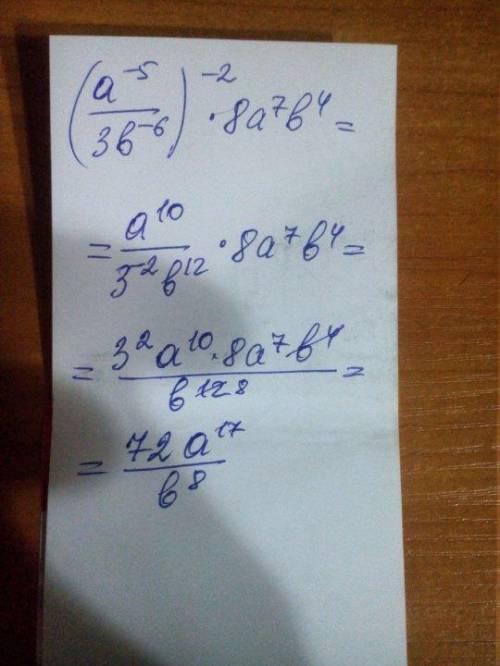 (a⁻⁵/3b⁻⁶)⁻² · 8a⁷b⁴ =
= a¹⁰/3⁻²b¹² · 8a⁷b⁴ =
= 3²a¹⁰ · 8a⁷b⁴/b¹² ⁸ =
= 72a¹⁷/b⁸